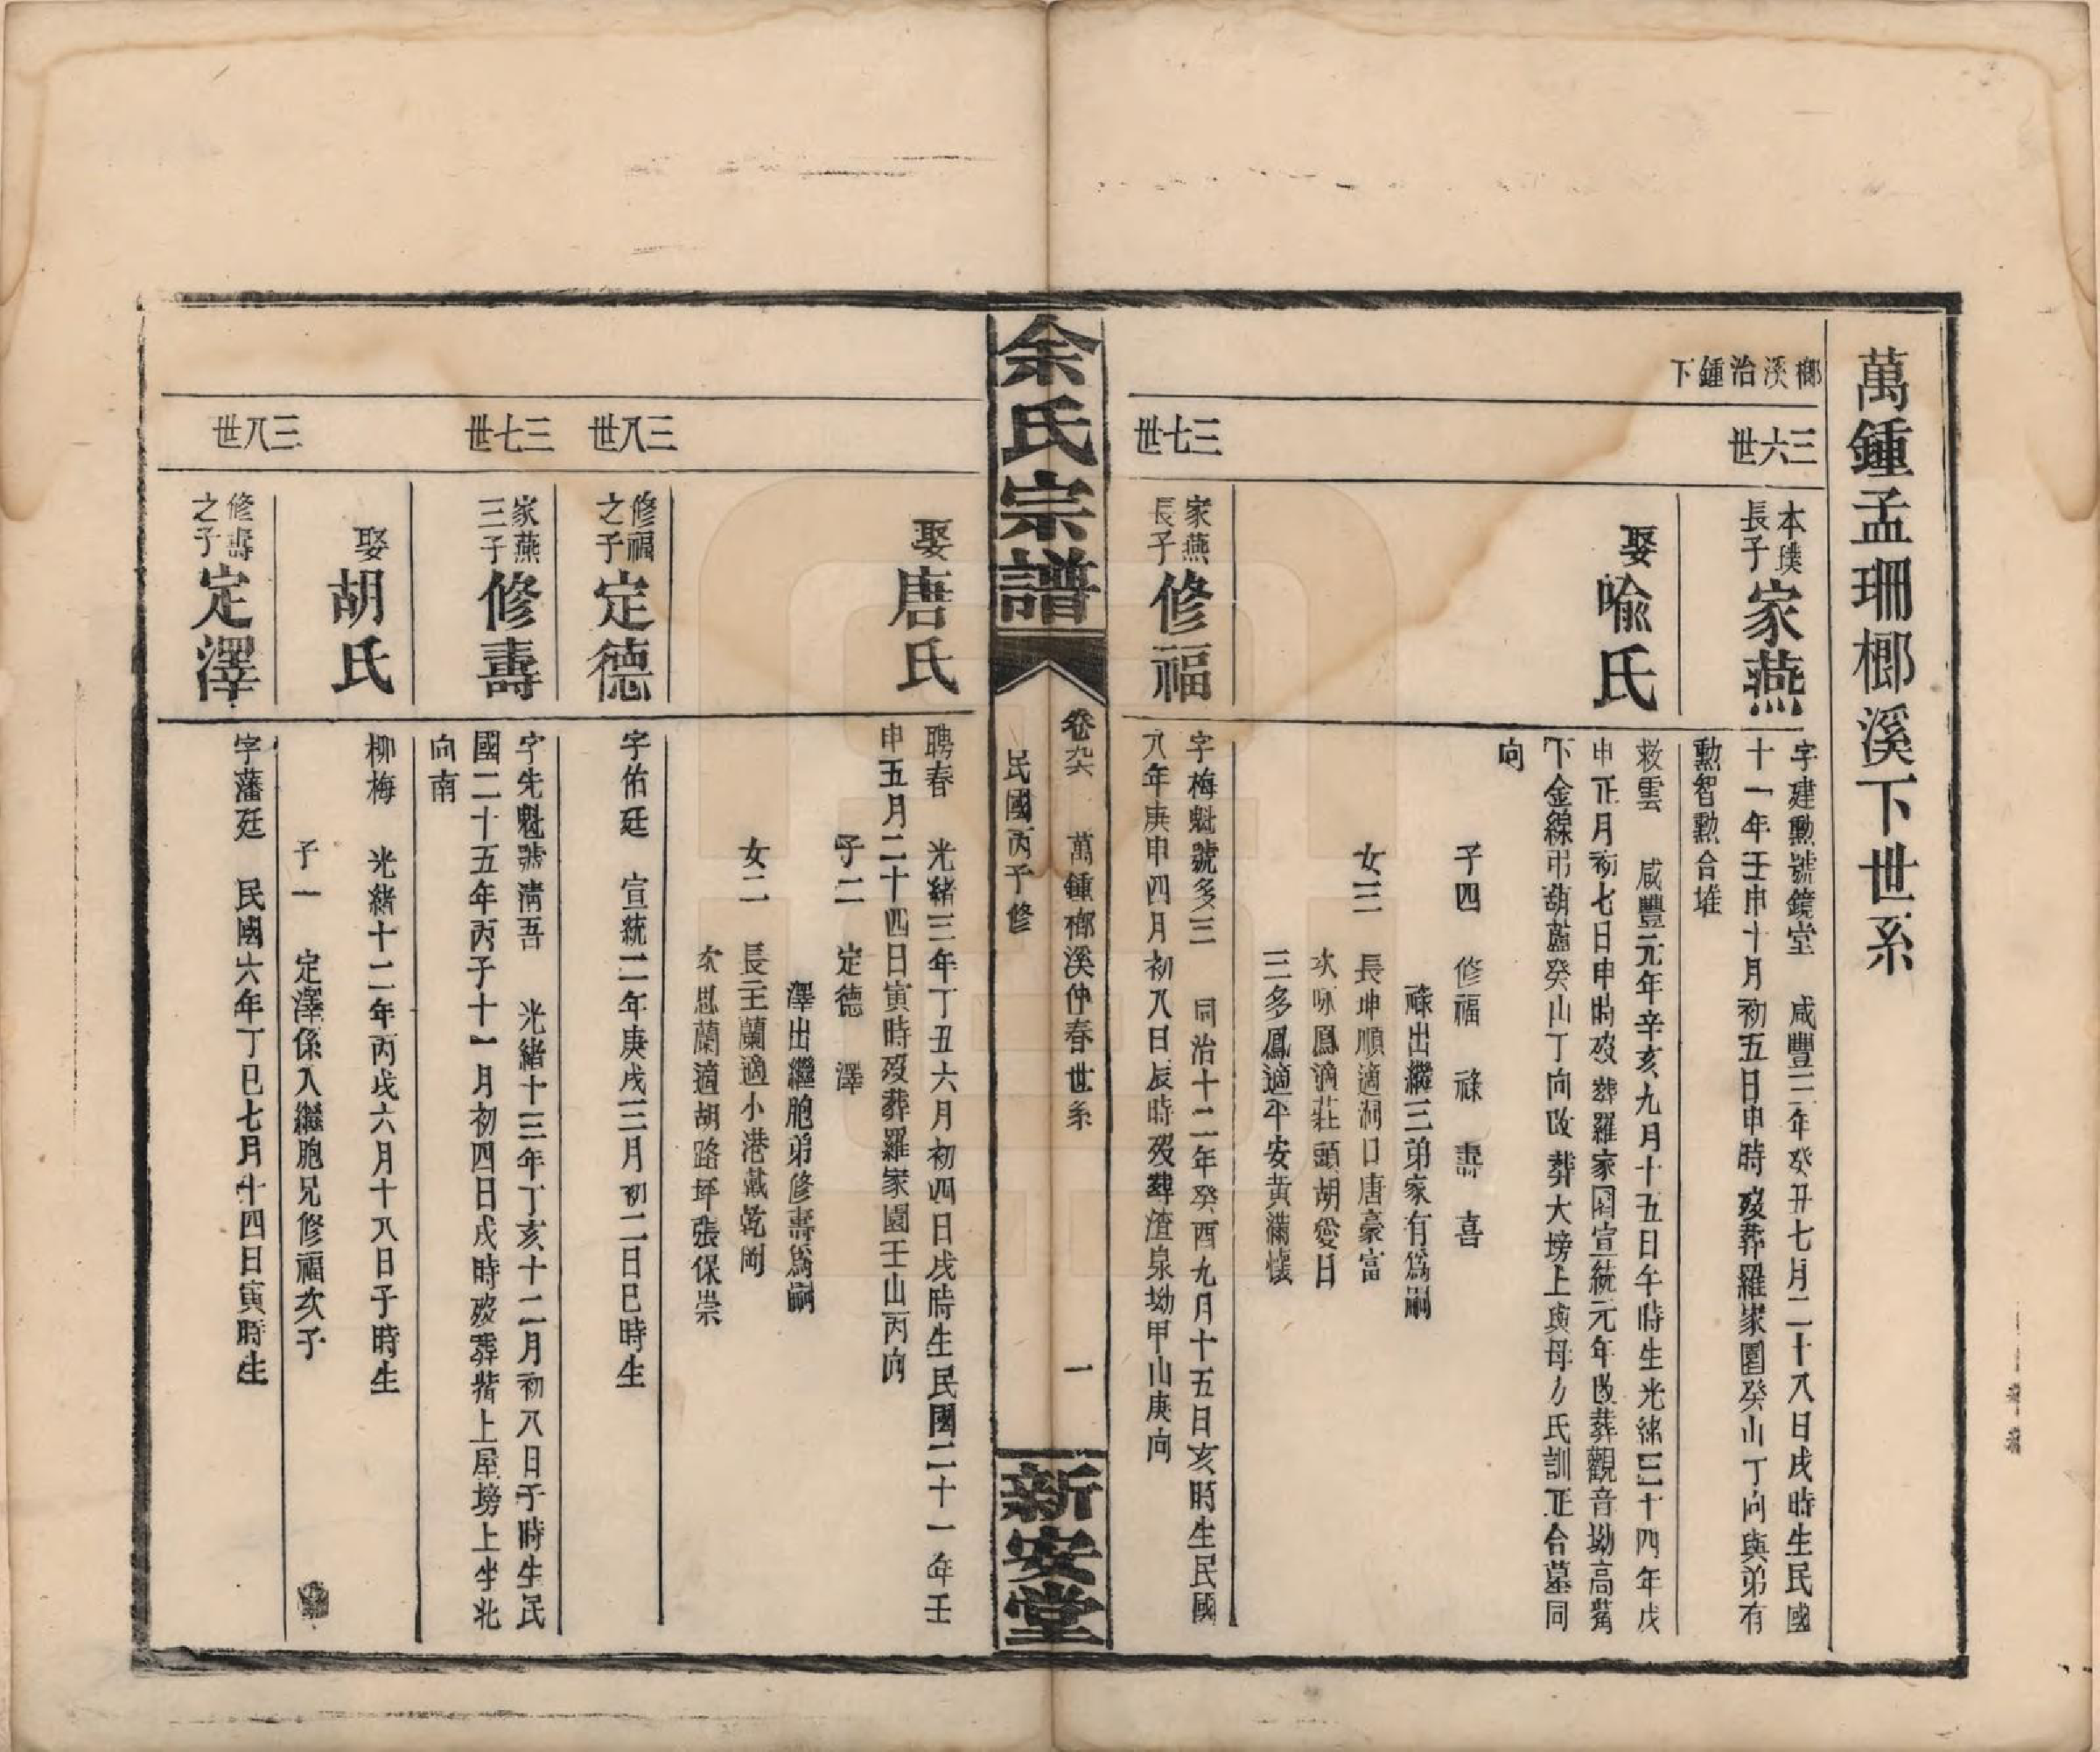 萬鍾孟珊榔溪下世系
榔溪治鍾下
三六世
本璞長子
家燕
字建勳號鏡堂　咸豐三年癸丑七月二十八日戌時生民國
十一年壬申十月初五日申時歿葬羅家園癸山丁向與弟有
勳智勳合堆
娶喩氏
救雲　咸豐元年辛亥九月十五日午時生光緖三十四年戊
申正月初七日申時歿葬羅家園宣統元年改葬觀音坳高嘴
下金線弔葫蘆癸山丁向改葬大塝上與母方氏訓正合墓同
向
子四　修福　祿　壽　喜
祿出繼三弟家有爲嗣
女三　長坤順適洞口唐豪富
次咏鳳適莊頭胡愛日
三多鳳適平安黄滿懷
三七世
家燕長子
修福
字梅魁號多三　同治十二年癸酉九月十五日亥時生民國
八年庚申四月初八日辰時歿葬渣泉坳甲山庚向
余氏宗譜
卷六　萬鍾榔溪仲春世系　一
民國丙子修
新安堂
娶唐氏
聘春　光緖三年丁丑六月初四日戌時生民國二十一年壬
申五月二十四日寅時歿葬羅家園壬山丙向
子二　定德　澤
澤出繼胞弟修壽爲嗣
女二　長玉蘭適小港戴乾岡
次思蘭適胡路坪張保崇
三八世
修福之子
定德
字佑廷　宣統二年庚戌三月初二日巳時生
三七世
家燕三子
修壽
字先魁號淸吾　光緖十三年丁亥十二月初八日子時生民
國二十五年丙子十一月初四日戌時歿葬上屋塝上坐北
向南
娶胡氏
柳梅　光緖十二年丙戌六月十八日子時生
子一　定澤係入繼胞兄修福次子
三八世
修壽之子
定澤
字藩廷　民國六年丁巳七月十四日寅時生